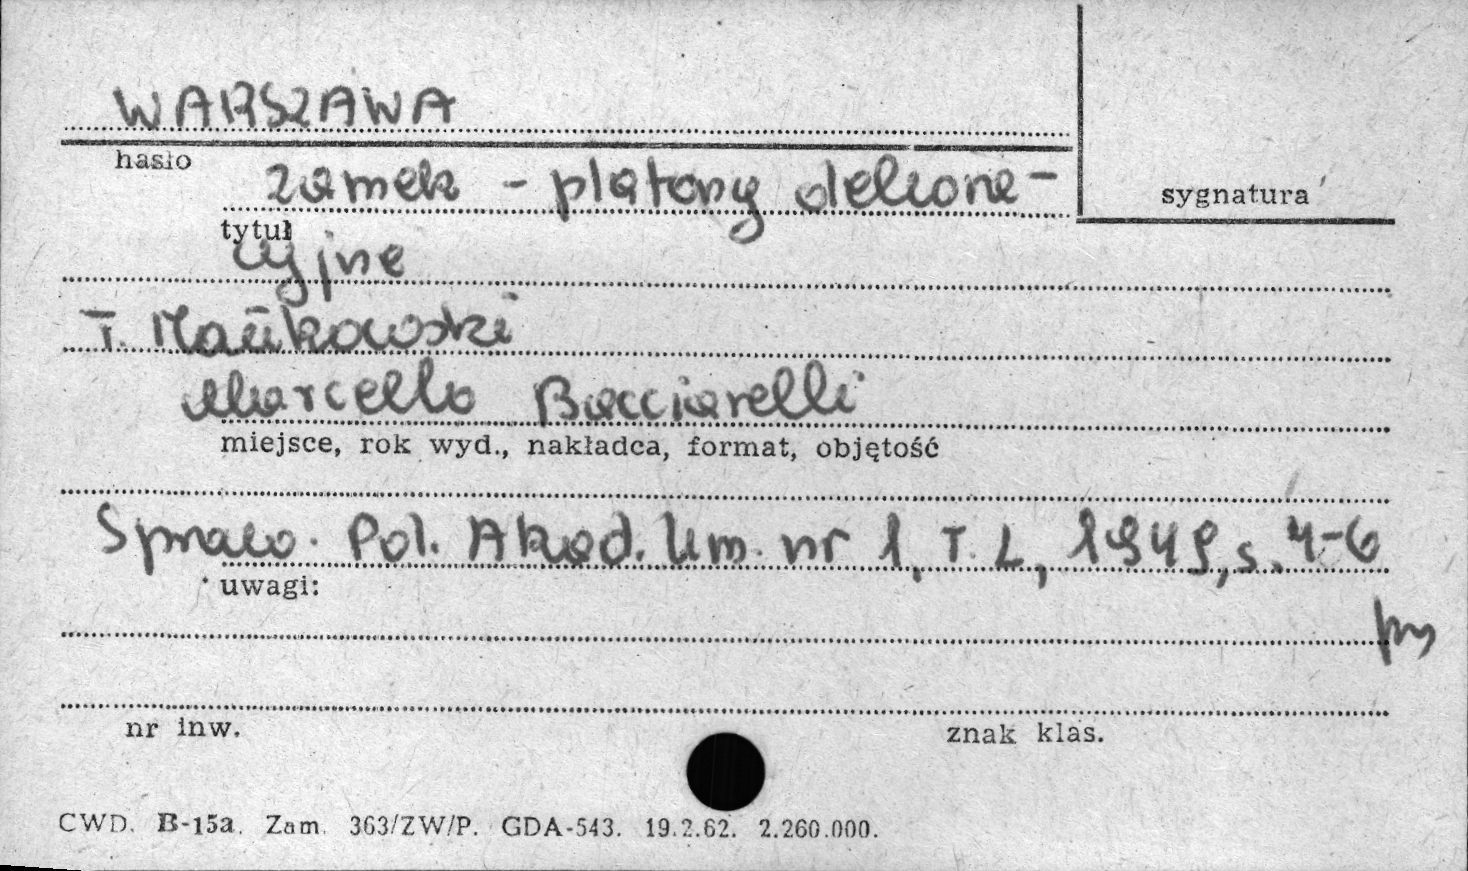 WARSZAWA
hasło
zamek - platony dekora-
sygnatura
tytuł
cyjne
T. Mańkowski
Marcello Bacciarelli
miejsce, rok wyd., nakładca, format, objętość
Spraw. Pol. Akad. Um. nr 1, T. L, 1949, s. 4-6
uwagi:
nr inw.
znak klas.
CWD. B-15a. Zam. 363/ZW/P. GDA-543. 19.2.62. 2.260.000.